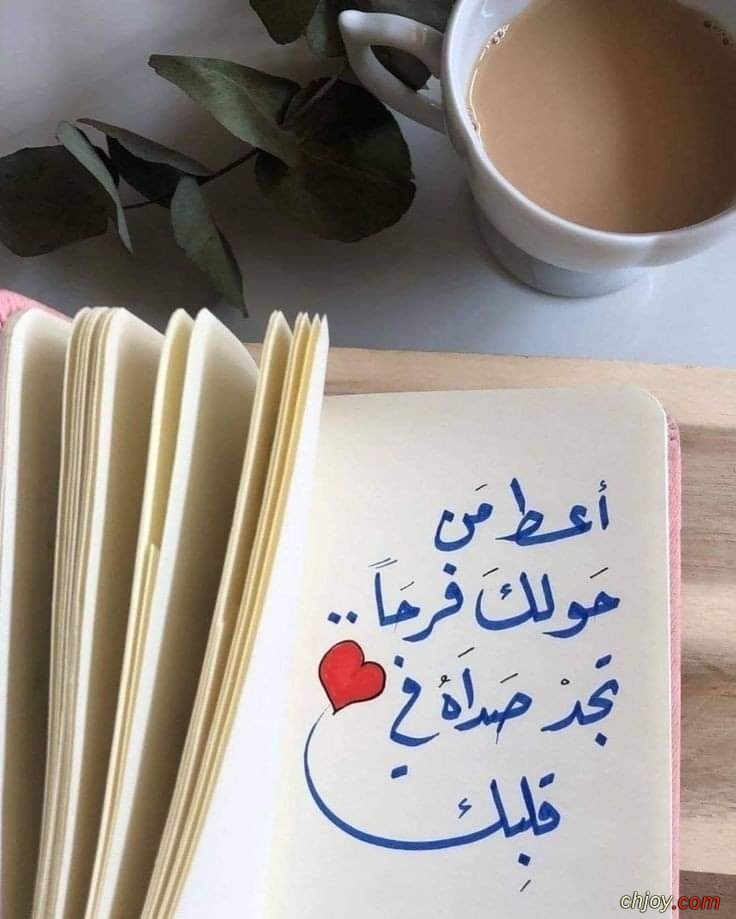 أعط مَن
حَولكَ فرحَاً ..
تجدْ صَداَهُ في
قلبِك
chjoy.com